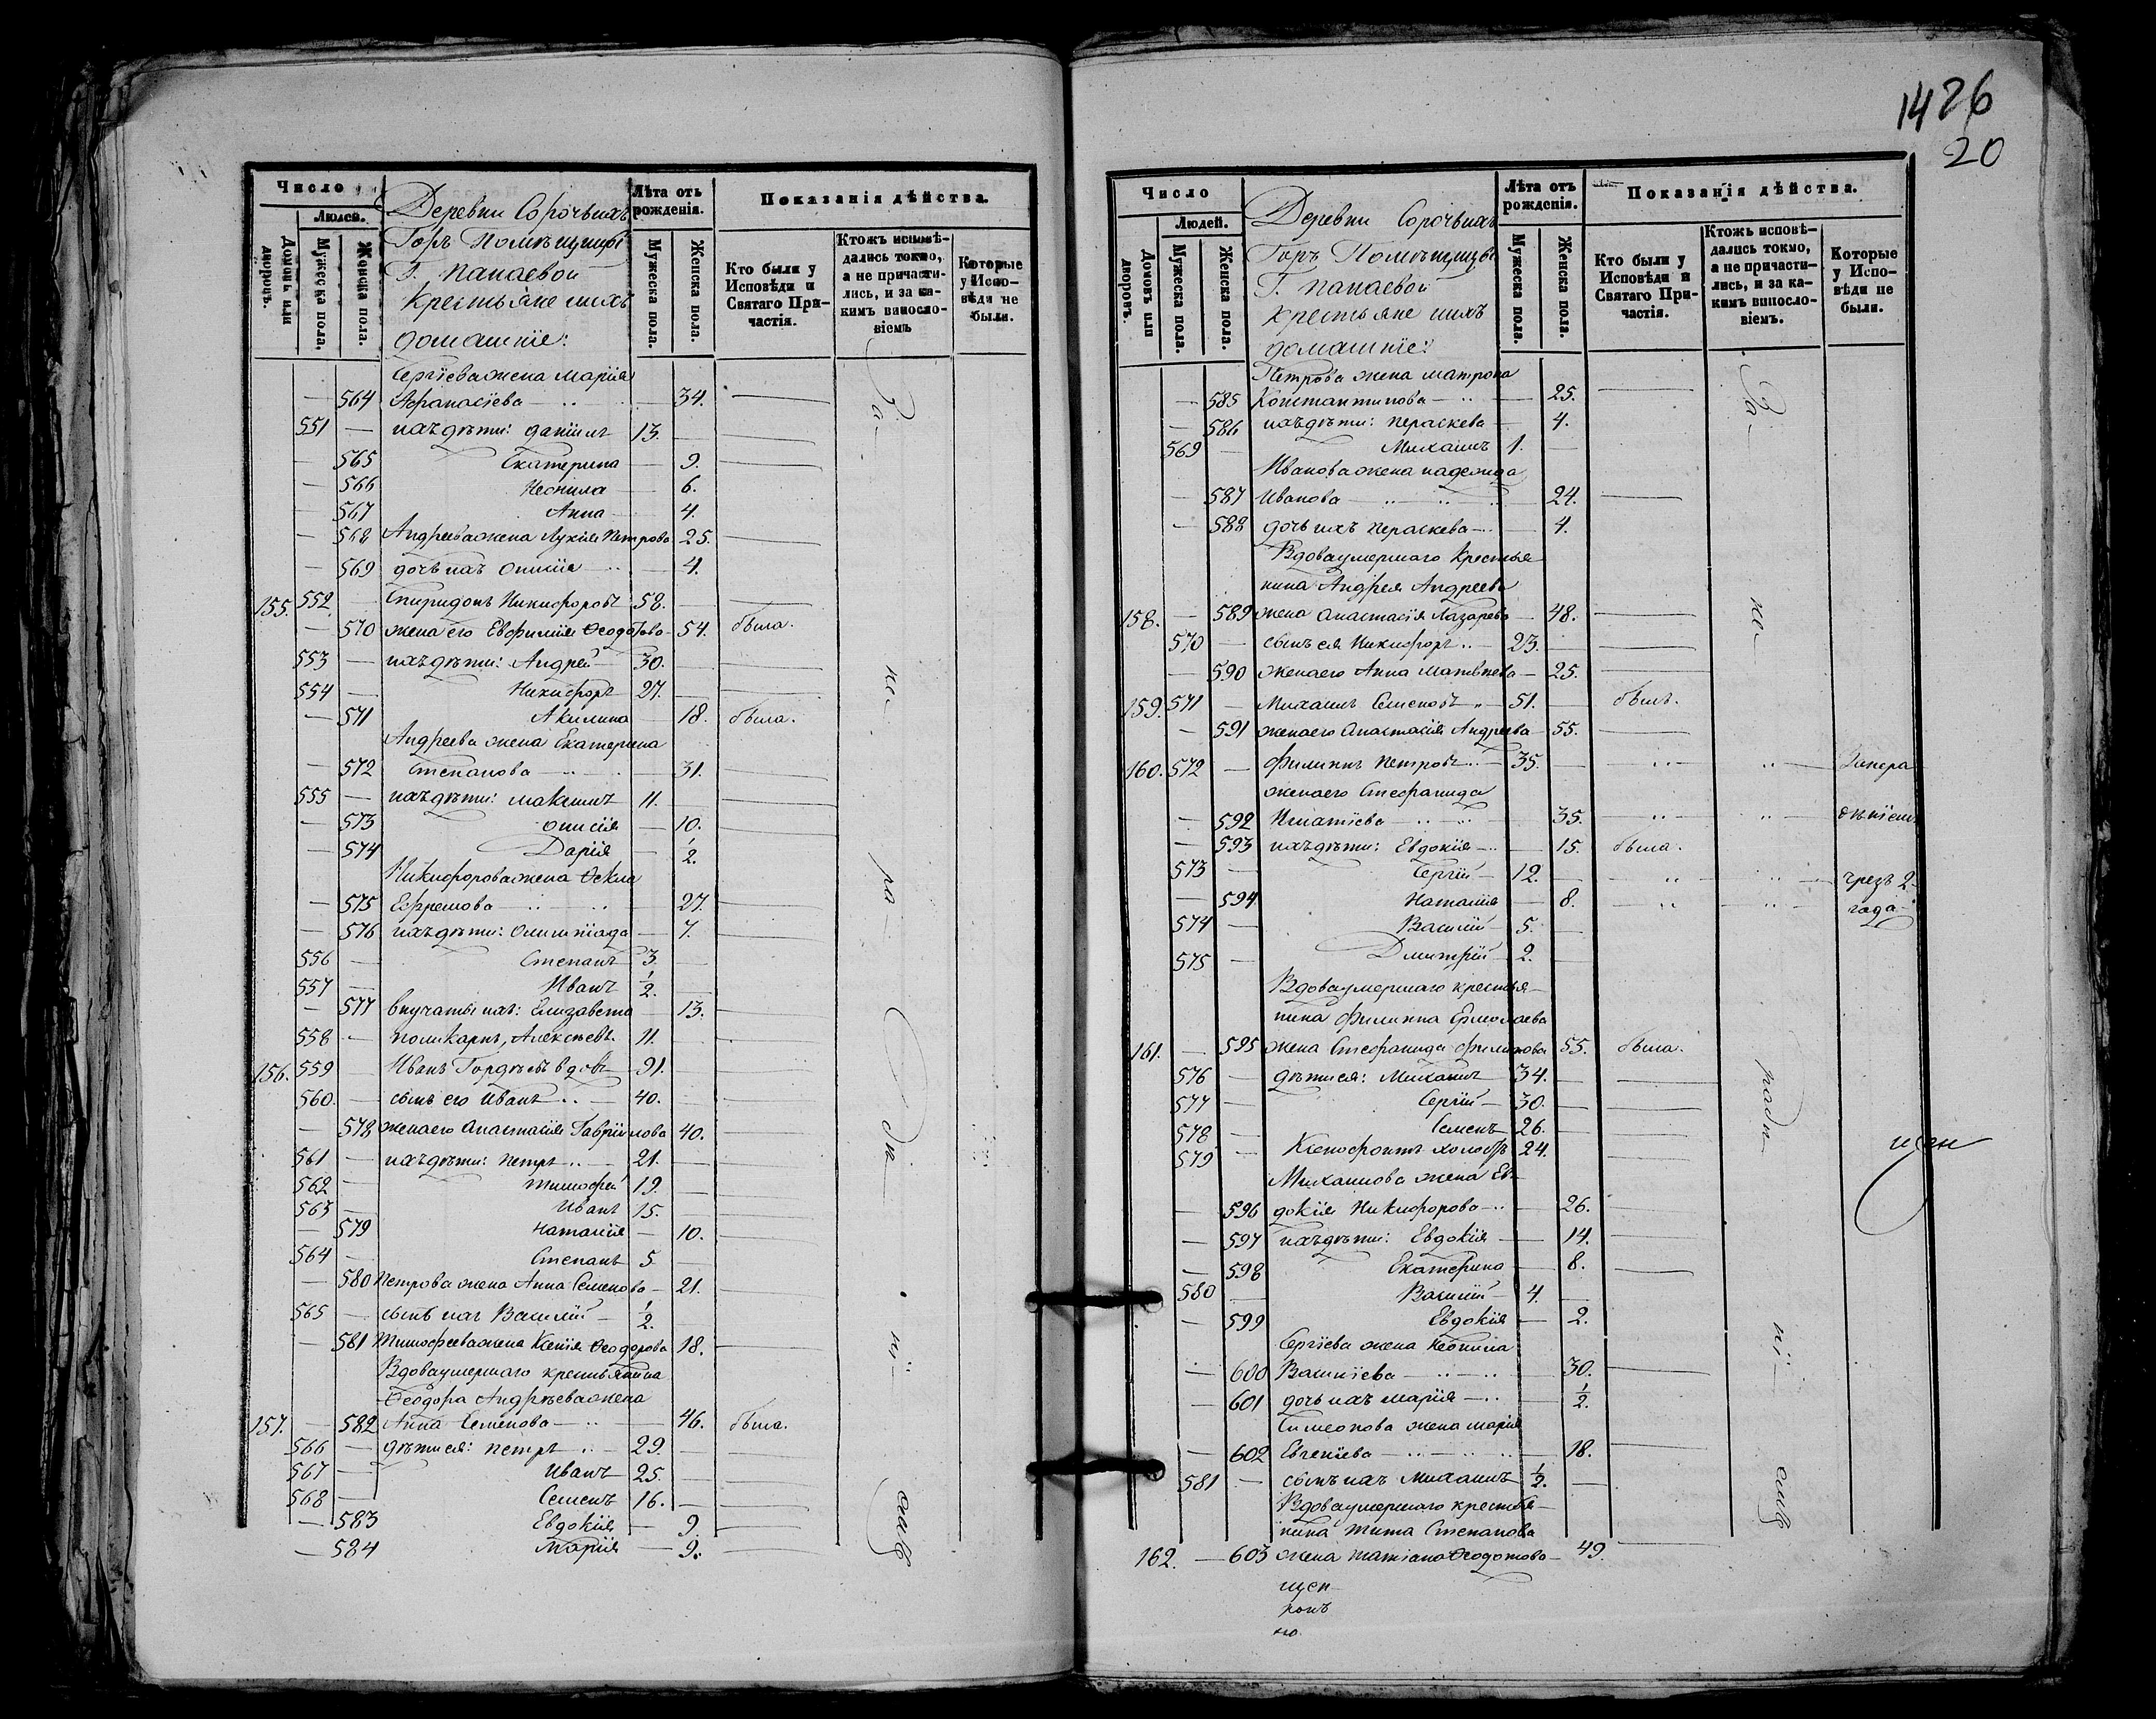 1426
20
Число
Людей.
Домовъ или дворовъ.
Мужеска пола.
Женска пола.
Деревни Сорочьихъ
Горъ Помѣщицы
Г. Панаевой
крестьяне и ихъ
домашніе:
Лѣта отъ рожденія.
Мужеска пола.
Женска пола.
Показанія дѣйства.
Кто были у Исповѣди и Святаго Причастія.
Ктожъ исповѣдались токмо, а не причастились, и за какимъ винословіемъ
Которые у Исповѣди не были.
Сергіева жена Марія
— 564 Афанасіева — 34. —
551 — ихъ дѣти: Даніилъ 13. —
— 565 Екатерина — 9. —
— 566 Неонила — 6.
— 567 Анна — 4.
— 568 Андреева жена Лукія Петрова 25. —
— 569 дочь ихъ Онисія — 4.
155. 552 — Спиридонъ Никифоровъ 58. —
— 570 жена его Евфимія Ѳеодотова — 54. была.
553 — ихъ дѣти: Андрей 30. —
554 — Никифоръ 27. —
— 571 Акилина — 18. была.
Андреева жена Екатерина
— 572 Степанова — 31. —
555 — ихъ дѣти: Максимъ 11. —
— 573 Онисія — 10. —
— 574 Дарія — 1/2.
Никифорова жена Ѳекла
— 575 Ефремова — 27. —
— 576 ихъ дѣти: Олимпіада — 7. —
556 — Степанъ 3. —
557 — Иванъ 1/2. —
— 577 внучаты ихъ: Елизавета — 13. —
558 — Поликарпъ, Алексѣевъ. 11. —
156. 559 — Иванъ Гордѣевъ вдовъ 91. —
560. — сынъ его Иванъ — 40. —
— 578 жена его Анастасія Гавріилова 40. —
561 — ихъ дѣти: Петръ — 21. —
562 — Тимофей 19. —
563 — Иванъ 15. —
— 579 Наталія — 10. —
564 — Степанъ 5 —
— 580 Петрова жена Анна Семенова — 21. —
565 — сынъ ихъ Василій — 1/2. —
— 581 Тимофеева жена Ксенія Ѳеодорова 18. —
Вдова умершаго крестьянина
Ѳеодора Андрѣева жена
157. — 582 Анна Семенова — 46. была.
566 — дѣти ея: Петръ — 29. —
567 — Иванъ 25. —
568 — Семенъ 16. —
— 583 Евдокія — 9. —
— 584 Марія — 9. —
За-
не-
ра-
дѣ-
ні-
емъ
Число
Людей.
Домовъ или дворовъ.
Мужеска пола.
Женска пола.
Деревни Сорочьихъ
Горъ Помѣщицы
Г. Панаевой
крестьяне и ихъ
домашніе:
Лѣта отъ рожденія.
Мужеска пола.
Женска пола.
Показанія дѣйства.
Кто были у Исповѣди и Святаго Причастія.
Ктожъ исповѣдались токмо, а не причастились, и за какимъ винословіемъ.
Которые у Исповѣди не были.
Петрова жена Матрона
— 585 Константинова — 25. —
— 586 ихъ дѣти: Пераскева — 4.
569 — Михаилъ 1. —
Иванова жена Надежда
— 587 Иванова — 24. —
— 588 дочь ихъ Пераскева — 4.
Вдова умершаго Крестья
нина Андрея Андреева
158. — 589 жена Анастасія Лазарева — 48. —
570 — сынъ ея Никифоръ — 23. —
— 590 жена его Анна Матвѣева — 25. —
159. 571 — Михаилъ Семеновъ — 51. — былъ.
— 591 жена его Анастасія Андреева — 55. —
160. 572 — Филиппъ Петровъ — 35. — Занера
жена его Стефанида
— 592 Игнатіева — 35. — дѣніем
— 593 ихъ дѣти: Евдокія — 15. была.
573 — Сергій — 12. — чрезъ 2
— 594 Наталія — 8. — года
574 — Василій 5. —
575 — Дмитрій 2. —
Вдова умершаго крестья-
нина Филиппа Ермолаева
161. — 595 жена Стефанида Филипова 55. была.
576 — дѣти ея: Михаилъ 34. —
577 — Сергій — 30. —
578 — Семенъ 26. —
579 — Ксенофонтъ холостъ 24. —
Михаилова жена Ев-
— 596 докія Никифорова — 26. —
— 597 ихъ дѣти: Евдокія — 14. —
— 598 Екатерина — 8. —
580 — Василій 4. —
— 599 Евдокія — 2. —
Сергіева жена Неонила
— 600 Василіева — 30. —
— 601 дочь ихъ Марія — 1/2.
Симеонова жена Марія
— 602 Евгеніева — 18. —
581 — сынъ ихъ Михаилъ 1/2. —
Вдова умершаго крестья-
нина Тита Степанова
162. — 603 жена Татіана Ѳеодотова — 49. —
За-
не-
радѣ-
ні-
емъ
щен
нонъ
но.